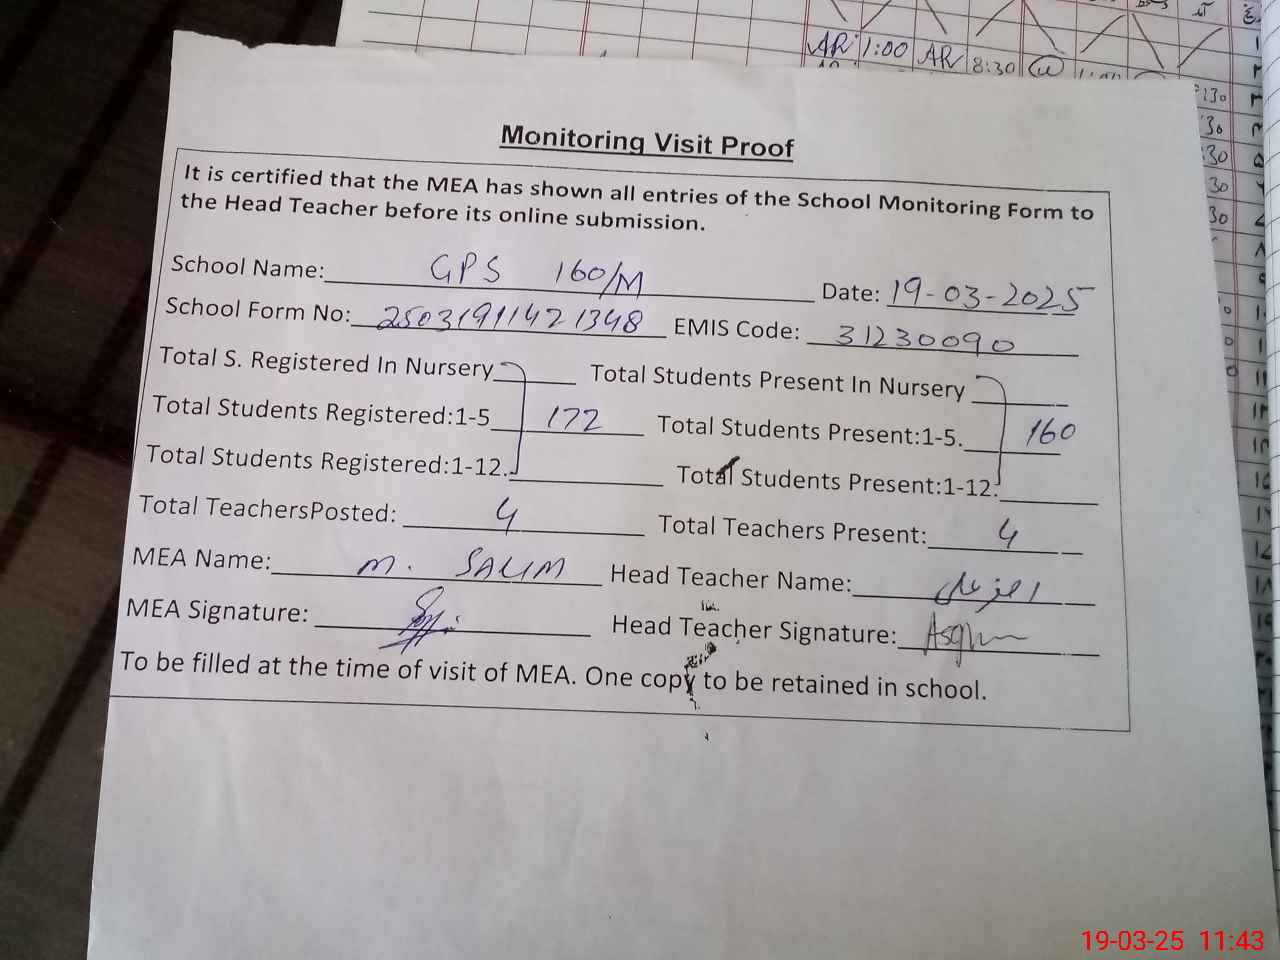 AR 1:00 AR 8:30
Monitoring Visit Proof
It is certified that the MEA has shown all entries of the School Monitoring Form to
the Head Teacher before its online submission.
School Name: GPS 160/M Date: 19-03-2025
School Form No: 25031911421348 EMIS Code: 31230090
Total S. Registered In Nursery Total Students Present In Nursery
Total Students Registered:1-5 172 Total Students Present:1-5. 160
Total Students Registered:1-12. Total Students Present:1-12.
Total TeachersPosted: 4 Total Teachers Present: 4
MEA Name: M. SALIM Head Teacher Name:
MEA Signature: Head Teacher Signature:
To be filled at the time of visit of MEA. One copy to be retained in school.
19-03-25 11:43